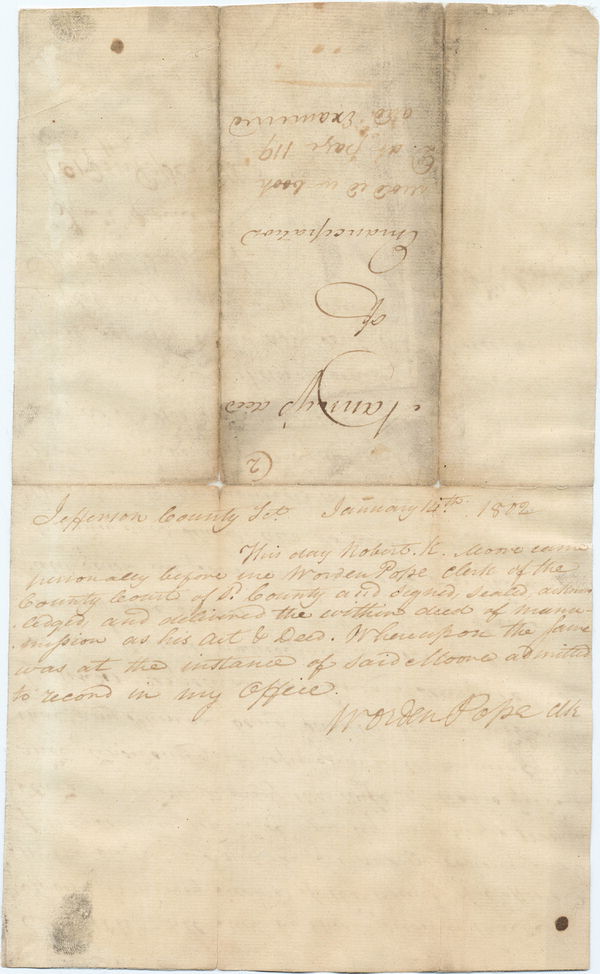 (2
Fanny's deed
of
Emancipation
at page 119
and Examined
Jefferson County Sct. January 14th 1802
This day Robert K. Moore came
personally before me Worden Pope Clerk of the
County Court of sd. County and signed, sealed, acknow
-ledged, and delivered the within deed of manu-
-mission as his Act & Deed. Whereupon the same
was at the instance of said Moore admitted
to record in my Office.
Worden Pope Clk